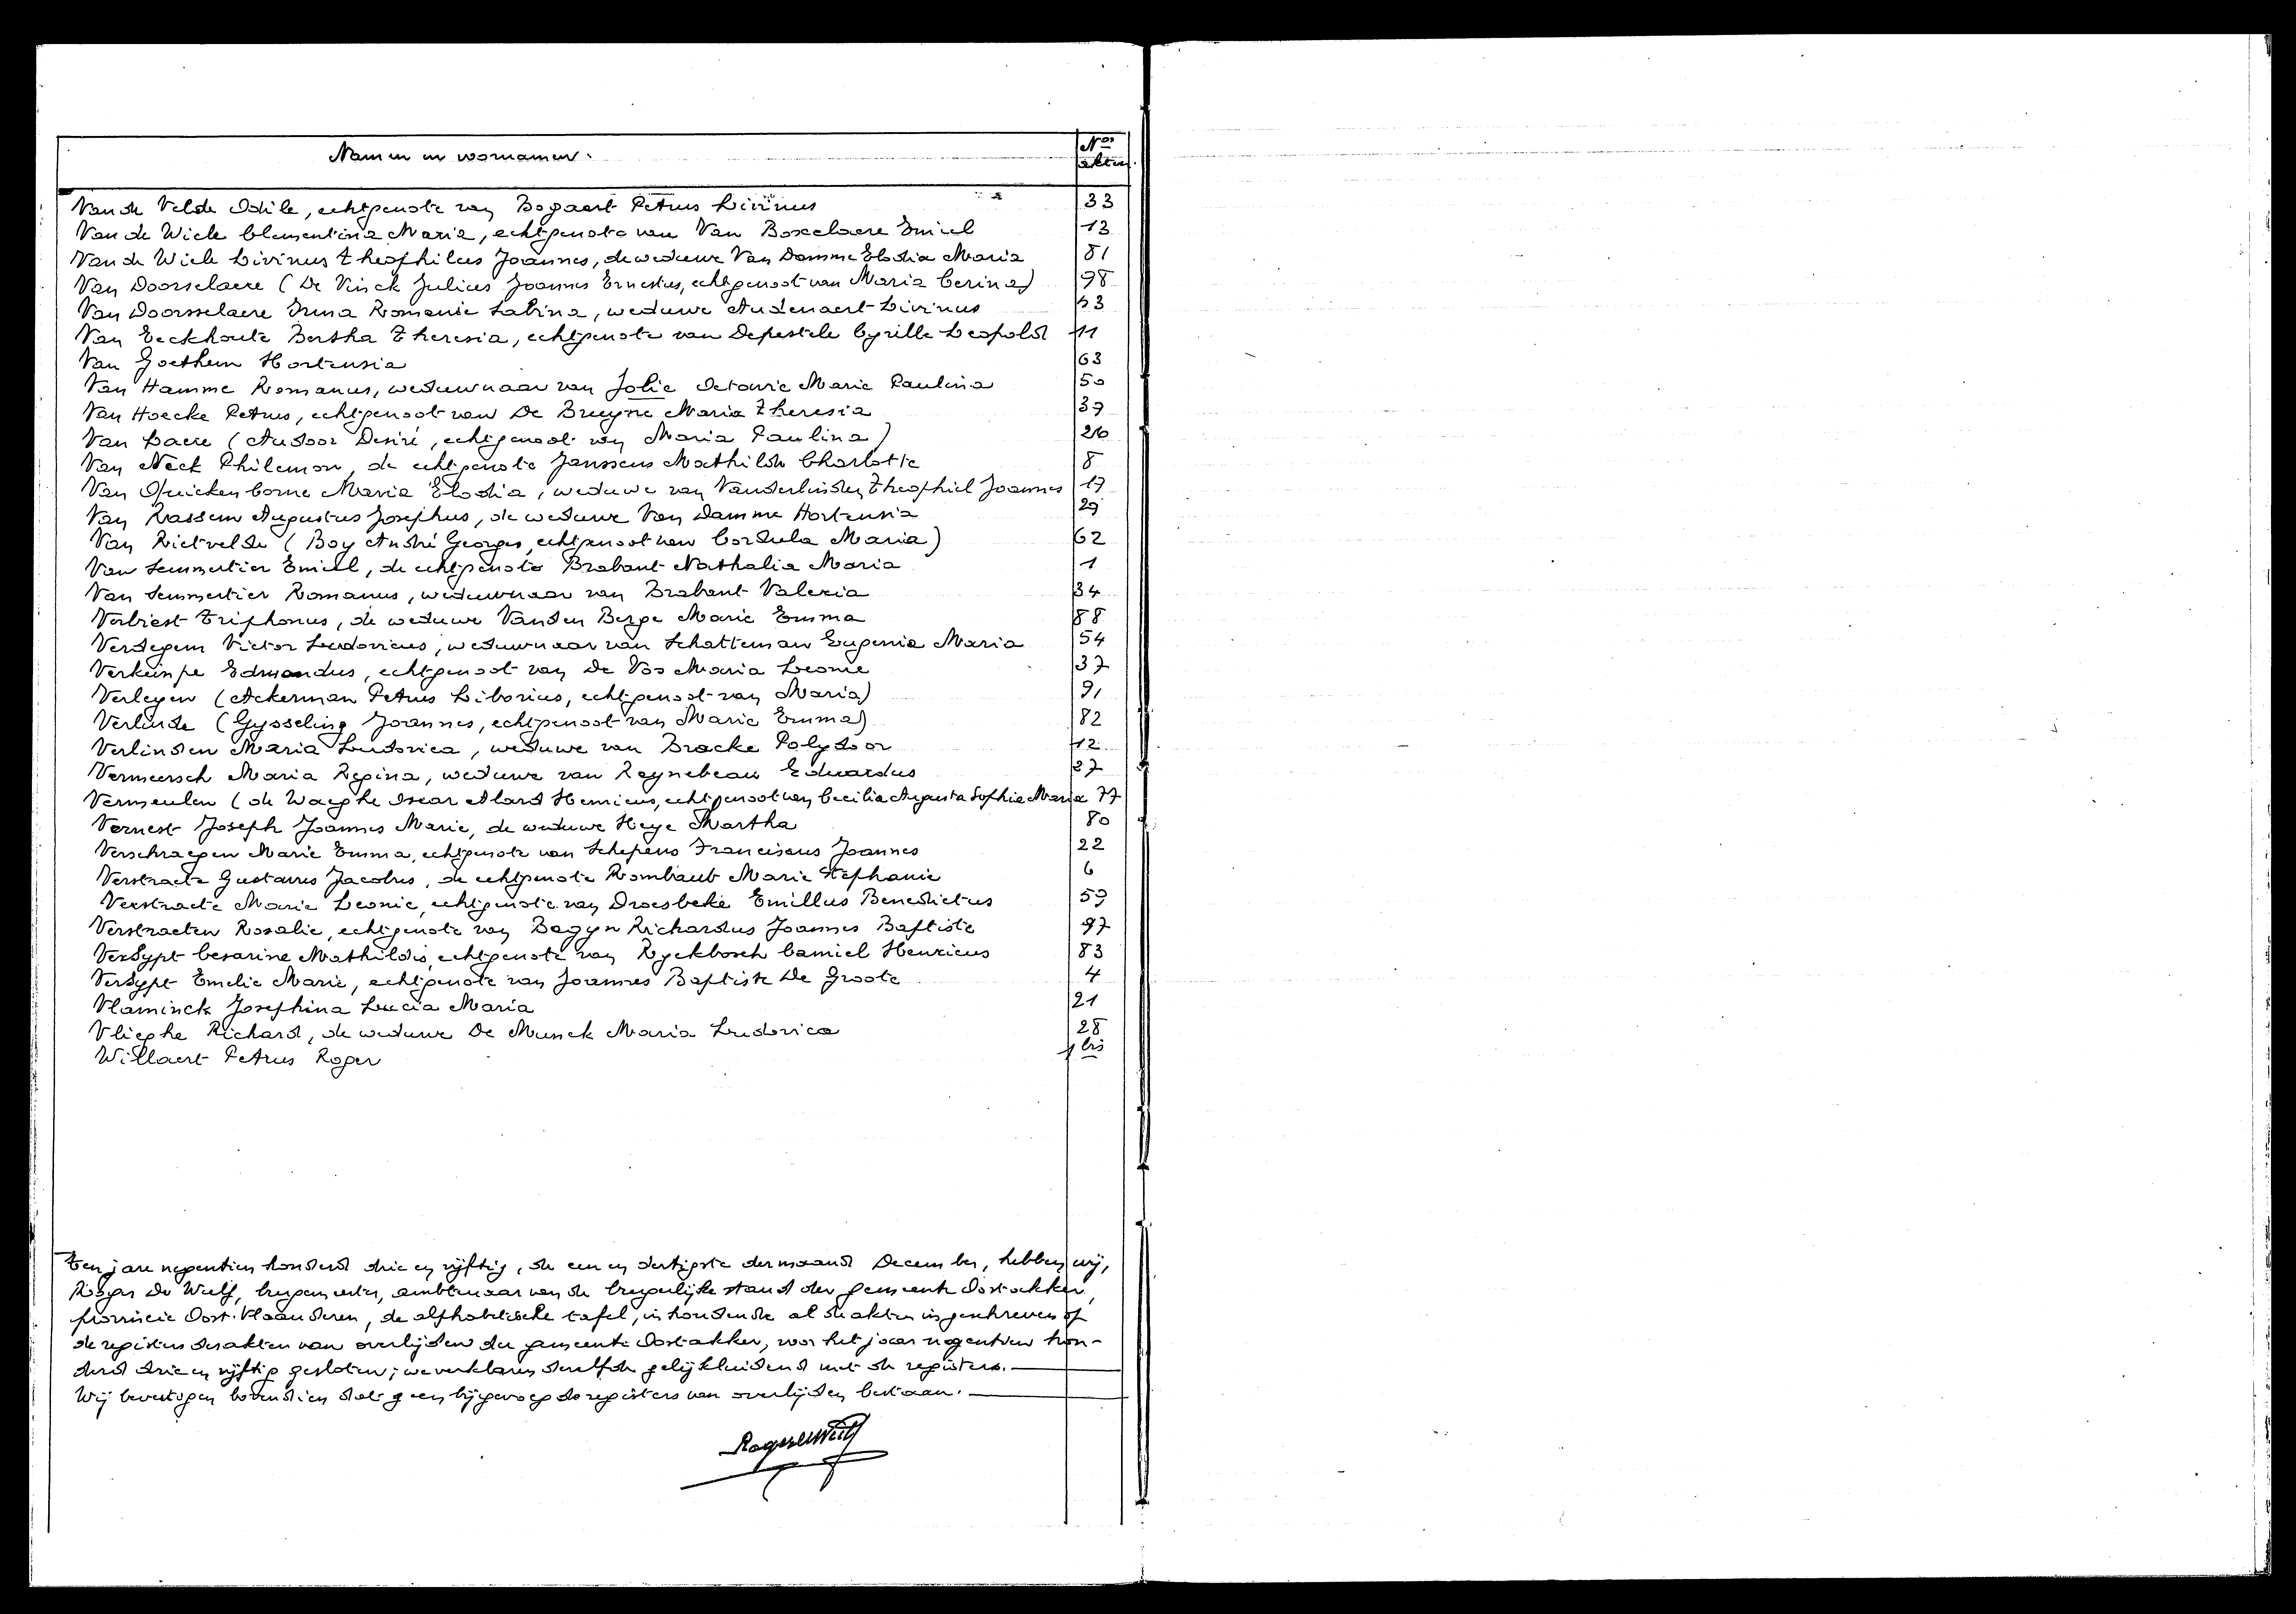 Namen en voornamen.
Nos akten.
Van de Velde Odile, echtgenote van Bogaert Petrus Livinus 33
Van de Wiele Clementina Maria, echtgenote van Van Boxelaere Emiel 13
Van de Wiele Livinus Theophilus Joannes, de weduwe Van Damme Elodia Maria 81
Van Doorselaere (De Vinck Julius Joannes Ernestus, echtgenoot van Maria Cerina) 98
Van Doorsselaere Irma Romanie Sabina, weduwe Audenaert Livinus 53
Van Eeckhoute Bertha Theresia, echtgenote van Depestele Cyrille Leopold 11
Van Goethem Hortensia 63
Van Hamme Romanus, weduwnaar van Jolie Octavie Marie Paulina 50
Van Hoecke Petrus, echtgenoot van De Bruyne Maria Theresia 39
Van Laere (Audoor Desiré, echtgenoot van Maria Paulina) 26
Van Neck Philemon, de echtgenote Janssens Mathilde Charlotte 8
Van Quickenborne Maria Elodia, weduwe van Vanderlinden Theophiel Joannes 17
Van Rassem Augustus Josephus, de weduwe Van Damme Hortensia 29
Van Rietvelde (Boy André Georges, echtgenoot van Cordula Maria) 62
Van Semmertier Emiel, de echtgenote Brabant Nathalia Maria 1
Van Semmertier Romanus, weduwnaar van Brabant Valeria 34
Verbiest Triphonus, de weduwe Vanden Berge Marie Emma 88
Verdegem Victor Ludovicus, weduwnaar van Schatteman Eugenia Maria 54
Verkeinpe Edmondus, echtgenoot van De Vos Maria Leonie 37
Verleyen (Ackerman Petrus Liborius, echtgenoot van Maria) 91
Verlinde (Gysseling Joannes, echtgenoot van Marie Emma) 82
Verlinden Maria Ludovica, weduwe van Bracke Polydoor 12
Vermeersch Maria Regina, weduwe van Reynebeau Eduardus 87
Vermeulen (de Waeghe Oscar Alard Henricus, echtgenoot van Cecilia Augusta Sophie Maria 77
Vernest Joseph Joannes Marie, de weduwe Heye Martha 80
Verschraegen Marie Emma, echtgenote van Schepens Franciscus Joannes 22
Verstraete Gustavus Jacobus, de echtgenote Rombaut Marie Stephanie 6
Verstraete Marie Leonie, echtgenote van Droesbeke Emillus Benedictus 59
Verstraeten Rosalie, echtgenote van Bagyn Richardus Joannes Baptiste 97
VerSypt Cesarine Mathildis, echtgenote van Ryckbosch Camiel Henricus 83
VerSypt Emelie Marie, echtgenote van Joannes Baptiste De Groote 4
Vlaminck Josephina Lucia Maria 21
Vlieghe Richard, de weduwe De Munck Maria Ludovica 28
Willaert Petrus Roger 1 bis
Ten jare negentien honderd drie en vijftig, de een en dertigste der maand December, hebben wij,
Roger De Wulf, burgemeester, ambtenaar van de burgerlijke stand der gemeente Oostakker,
provincie Oost-Vlaanderen, de alphabetische tafel, inhoudende al de akten ingeschreven op
de registers der akten van overlijden der gemeente Oostakker, voor het jaar negentien hon-
derd drie en vijftig gesloten; we verklaren dezelfde gelijkluidend met de registers.
Wij bevestigen bovendien dat geen bijgevoegde registers van overlijden bestaan.
Roger De Wulf